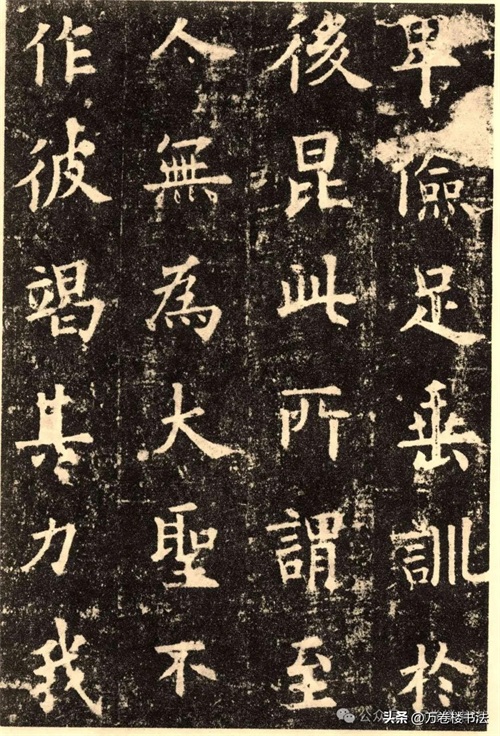 卑儉足垂訓於
後昆此所謂至
人無為大聖不
作彼竭其力我
头条 @万卷楼书法